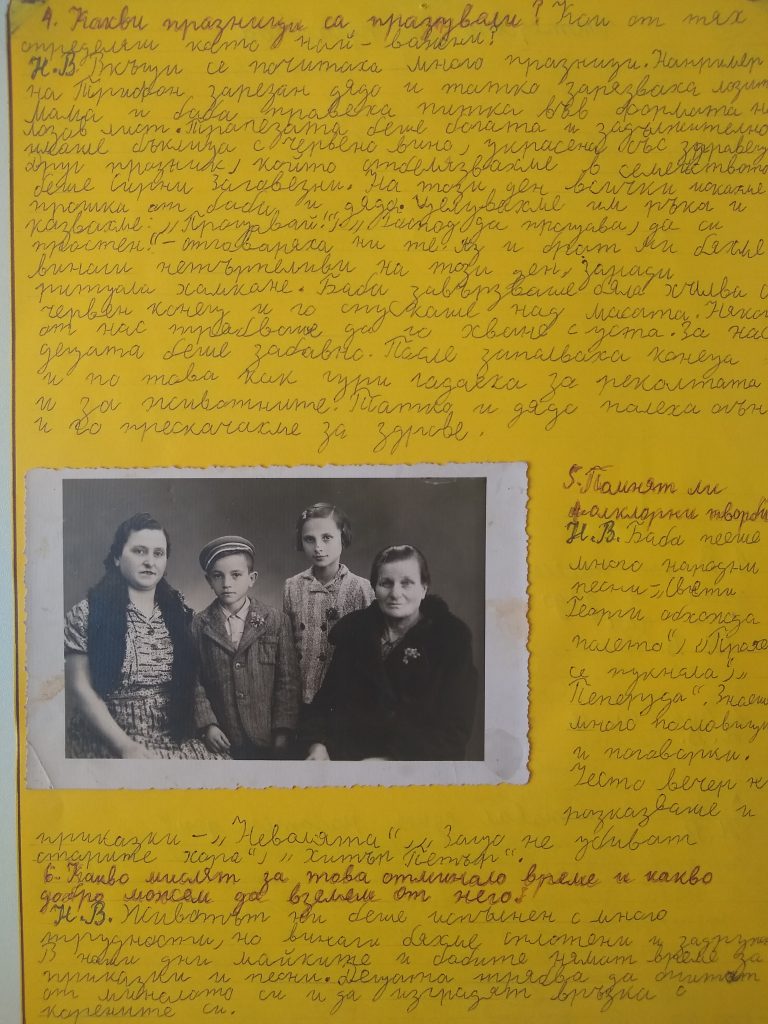 4. Какви празници са празували? Кои от тях
определяш като най-важни?
Н.В. Вкъщи се почитаха много празници. Например
на Трифон зарезан дядо и татко зарязваха лозите
мама и баба правеха питка във формата на
лозов лист. Трапезата беше богата и задължително
имаше бъклица с червено вино, украсена със здравец
друг празник, който отбелязвахме в семейството
беше Сирни Заговезни. На този ден всички искахме
прошка от баба и дядо. Целувахме им ръка и
казвахме: „Прощавай!“, „Господ да прощава, да си
простен!“ - отговаряха ни те. Аз и брат ми бяхме
винаги нетърпеливи на този ден, заради
ритуала хамкане. Баба завързваше бяла халва с
червен конец и го спускаше над масата. Някой
от нас трябваше да го хване с уста. За нас
децата беше забавно. После запалваха конеца
и по това как гори гадаеха за реколтата
и за животните. Татко и дядо палеха огън
и го прескачахме за здраве.
5. Помнят ли
фолклорни творби
Н.В. Баба пееше
много народни
песни - „Свети
Георги обхожда
полето“, „
се пукнала“, „
Пеперуда“. Знаеше
много пословици
и поговорки.
Често вечер н
розказваше и
приказки - „Неволята“, „Защо не убиват
старите хора“, „Хитър Петър“.
6. Какво мислят за това отминало време и какво
добро можем да вземем от него?
Н.В. Животът ни беше изпълнен с много
трудности, но винаги бяхме сплотени и задружн
В наши дни майките и бабите нямат време за
приказки и песни. Децата трябва да
от миналото си и да изградят връзка с
корените си.